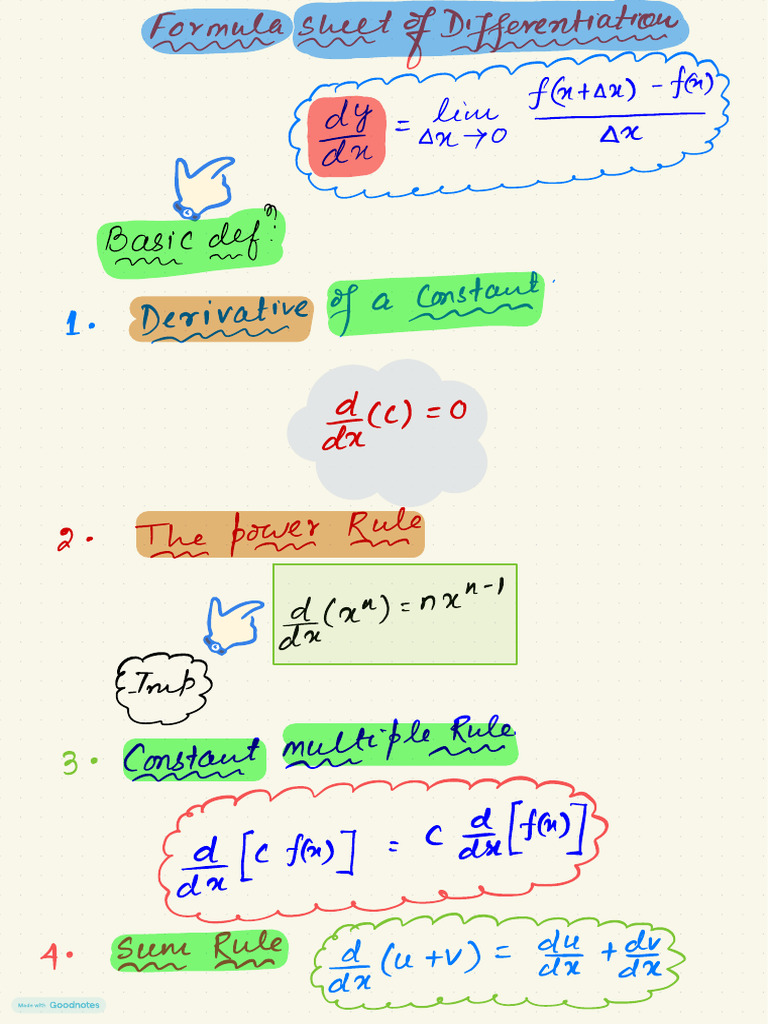 Formula sheet of Differentiation
dy/dx = lim Δx→0 f(x+Δx) - f(x) / Δx
Basic defⁿ
1. Derivative of a constant.
d/dx (c) = 0
2. The power Rule
d/dx (xⁿ) = nxⁿ⁻¹
Imp
3. Constant multiple Rule
d/dx [c f(x)] = c d/dx [f(x)]
4. Sum Rule
d/dx (u+v) = du/dx + dv/dx
Made with Goodnotes